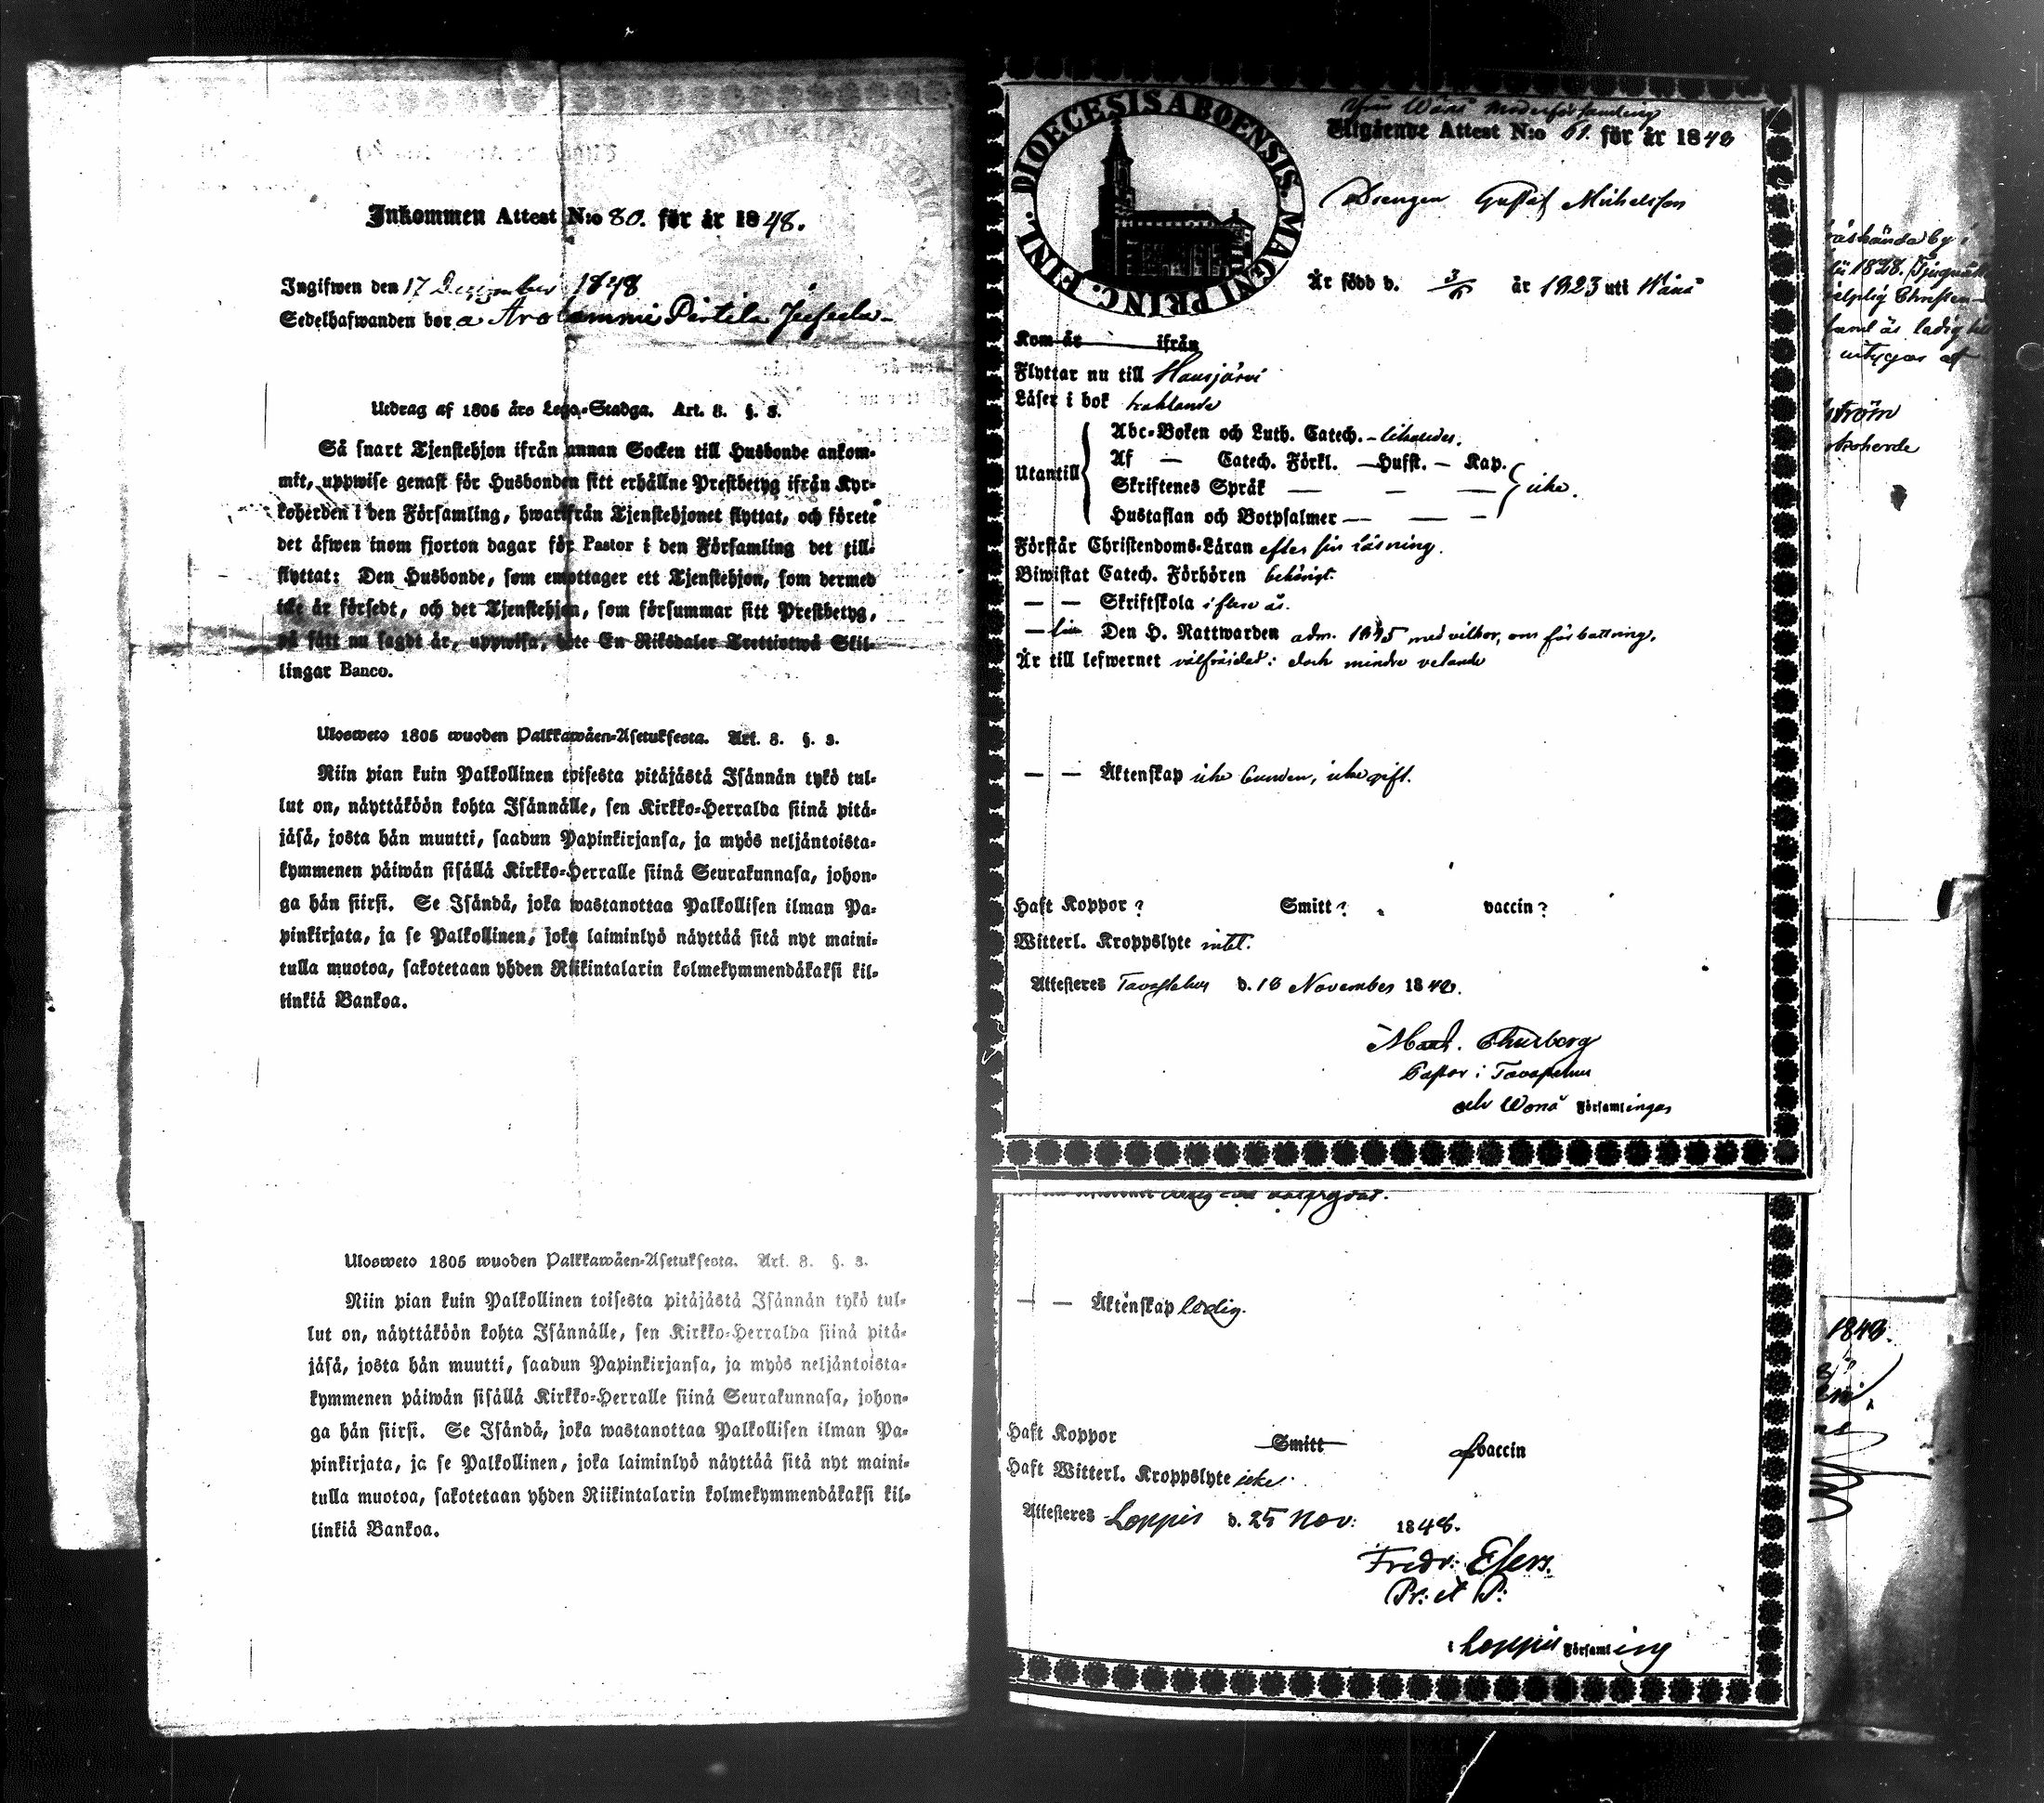 Inkommen Attest N:o 80. för år 1848.
Ingifwen den 17 December 1848
Sedelhafwanden bor a Arolammi Pirtila
Utdrag af 1805 års Lego-Stadga. Art. 8. §. 3.
Så snart Tjenstehjon ifrån annan Socken till Husbonde ankom-
mit, uppwise genast för Husbonden sitt erhållne Prestbetyg ifrån Kyr-
koherden i den Församling, hwarifrån Tjenstehjonet flyttat, och förete
det äfwen inom fjorton dagar för Pastor i den Församling det till-
flyttat: Den Husbonde, som emottager ett Tjenstehjon, som dermed
icke är försedt, och det Tjenstehjon, som försummar sitt Prestbetyg,
på sätt nu sagdt är, uppwisa, böte En Riksdaler Trettiotwå Skil-
lingar Banco.
Ulosweto 1805 wuoden Palkkawäen-Asetuksesta. Art. 8. §. 3.
Niin pian kuin Palkollinen toisesta pitäjästä Isännän tykö tul-
lut on, näyttäköön kohta Isännälle, sen Kirkko-Herralda siinä pitä-
jäsä, josta hän muutti, saadun Papinkirjansa, ja myös neljäntoista-
kymmenen päiwän sisällä Kirkko-Herralle siinä Seurakunnasa, johon-
ga hän siirsi. Se Isändä, joka wastanottaa Palkollisen ilman Pa-
pinkirjata, ja se Palkollinen, joka laiminlyö näyttää sitä nyt maini-
tulla muotoa, sakotetaan yhden Riikintalarin kolmekymmendäkaksi kil-
linkiä Bankoa.
Ulosweto 1805 wuoden Palkkawäen-Asetuksesta. Art. 8. §. 3.
Niin pian kuin Palkollinen toisesta pitäjästä Isännän tykö tul-
lut on, näyttäköön kohta Isännälle, sen Kirkko-Herralda siinä pitä-
jäsä, josta hän muutti, saadun Papinkirjansa, ja myös neljäntoista-
kymmenen päiwän sisällä Kirkko-Herralle siinä Seurakunnasa, johon-
ga hän siirsi. Se Isändä, joka wastanottaa Palkollisen ilman Pa-
pinkirjata, ja se Palkollinen, joka laiminlyö näyttää sitä nyt maini-
tulla muotoa, sakotetaan yhden Riikintalarin kolmekymmendäkaksi kil-
linkiä Bankoa.
DIOECESIS ABOENSIS MAGNI PRINC. FINL.
från Wånå Moderförsamling
Utgående Attest N:o 61. för år 1848
Drengen Gustaf Michelsson
Är född d. 3/6 år 1823 uti Wånå
Kom år ifrån
Flyttar nu till Hausjärvi
Läser i bok traklande
Utantill
Abc-Boken och Luth. Catech. - likaledes.
Af — Catech. Förkl. — Husft. — Kap.
Skriftenes Språk — — — icke.
Hustaflan och Botpsalmer — — —
Förstår Christendoms-Läran efter sin läsning.
Biwistat Catech. Förhören behörigt.
— — Skriftskola i flere år.
— Den H. Nattwarden adm. 1845 med vilkor, om förbättring.
Är till lefwernet välfräjdad: dock mindre vetande
— — Äktenskap icke bunden, icke gift.
Haft Koppor? Smitt? vaccin?
Witterl. Kroppslyte intet.
Attesteres Tavastehus d. 18 November 1848.
Thurberg
Pastor i Tavastehus
och Wånå Församlingar
— — Äktenskap ledig.
Haft Koppor Smitt af vaccin
Haft Witterl. Kroppslyte icke.
Attesteres Loppis d. 25 Nov: 1848.
Fredr:
Pr: et P:
i Loppis Församling
1828.
ledig
intygas af
1848.